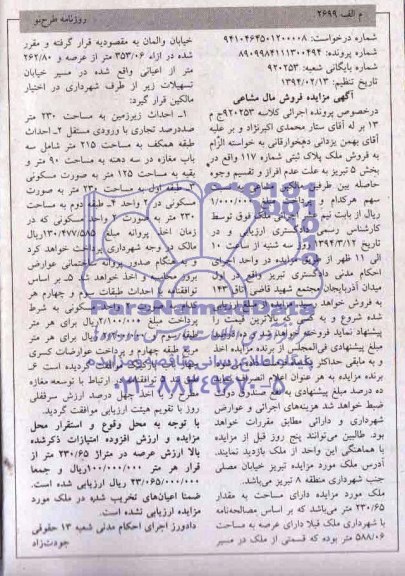 م الف ۲۶۹۹
روزنامه طرح‌نو
شماره درخواست: ۹۴۱۰۴۶۳۵۰۱۲۰۰۰۰۸
شماره پرونده: ۸۹۰۹۹۸۴۱۱۱۳۰۰۴۹۴
شماره بایگانی شعبه: ۹۲۰۲۵۳
تاریخ تنظیم: ۱۳۹۴/۰۲/۱۳
آگهی مزایده فروش مال مشاعی
درخصوص پرونده اجرائی کلاسه ۹۲۰۲۵۳ج م
۱۳ بر له آقای ستار محمدی اکبرنژاد و بر علیه
آقای بهمن یزدانی دهخوارقانی به خواسته الزام
به فروش ملک پلاک ثبتی شماره ۱۱۷ واقع در
بخش ۵ تبریز به علت عدم افراز و تقسیم وجوه
حاصله بین طرفین مالکین مشاعی
سهم هرکدام و پرداخت مبلغ ۱/۰۰۰/۰۰۰
ریال از بابت نیم عشر ملک فوق توسط
کارشناس رسمی دادگستری ارزیابی و در
تاریخ ۱۳۹۴/۳/۱۲ روز سه شنبه از ساعت ۱۰
الی ۱۱ ظهر از طریق مزایده در واحد اجرای
احکام مدنی دادگستری تبریز واقع در اول
میدان آذربایجان مجتمع شهید قاضی اتاق ۱۴۳
به فروش خواهد رسید مزایده از مبلغ ارزیابی
شده شروع و به کسی که بالاترین قیمت را
پیشنهاد نماید فروخته خواهد شد و ده درصد
مبلغ پیشنهادی فی‌المجلس از برنده مزایده اخذ
و به مابقی حداکثر
برنده مزایده به هر عنوان اعلام انصراف نماید
ده درصد مبلغ پیشنهادی به نفع صندوق دولت
ضبط خواهد شد هزینه‌های اجرائی و عوارض
شهرداری و دارائی مطابق مقررات خواهد
بود. طالبین می‌توانند پنج روز قبل از مزایده
با هماهنگی این واحد از ملک بازدید نمایند.
آدرس ملک مورد مزایده تبریز خیابان مصلی
جنب شهرداری منطقه ۸ تبریز می‌باشد.
ملک مورد مزایده دارای مساحت به مقدار
۲۳۰/۶۵ متر می‌باشد که بر اساس مصالحه‌نامه
با شهرداری ملک قبلا دارای عرصه به مساحت
۵۸۸/۰۶ متر بوده که قسمتی از ملک در مسیر
خیابان والمان به مقصودیه قرار گرفته و مقرر
شده در ازاء ۳۵۳/۰۶ متر از عرصه و ۲۶۲/۸۰
متر از اعیانی واقع شده در مسیر خیابان
تسهیلات زیر از طرف شهرداری در اختیار
مالکین قرار گیرد:
۱ـ احداث زیرزمین به مساحت ۲۳۰ متر
صددرصد تجاری با ورودی مستقل ۲ـ احداث
طبقه همکف به مساحت ۲۱۵ متر شامل سه
باب مغازه در سه دهنه به مساحت ۹۰ متر و
بقیه به مساحت ۱۲۵ متر به صورت مسکونی
۳ـ طبقه اول به مساحت ۲۳۰ متر به صورت
مسکونی در ۲ واحد ۴ـ طبقه دوم به مساحت
۲۳۰ متر به صورت ۲ واحد مسکونی که در
زمان اخذ پروانه مبلغ ۱۳۰/۴۷۷/۵۸۵ریال
مالک در وجه شهرداری پرداخت خواهد کرد
و به هنگام صدور پروانه ساختمانی عوارض
بروز محاسبه و اخذ خواهد شد. ۵ـ بر اساس
توافقنامه با احداث طبقات سوم و چهارم هر
کدام به صورت ۲ واحد مسکونی به شرط
پرداخت مبلغ ۲/۱۰۰/۰۰۰ریال برای هر متر
طبقه سوم و ریال برای هر متر
مربع طبقه چهارم و پرداخت عوارضات کسری
پارکینگ موافقت گردیده است ۶ـ
طبق توافقنامه در ارتباط با توسعه مغازه
مشرط به اخذ چهل درصد ارزش سرقفلی
روز با تقویم هیئت ارزیابی موافقت گردید.
با توجه به محل وقوع و استقرار محل
مزایده و ارزش افزوده امتیازات ذکرشده
بالا ارزش عرصه در متراژ ۲۳۰/۶۵ متر از
قرار هر متر ۱۰۰/۰۰۰/۰۰۰ریال و جمعا
۲۳/۰۶۵/۰۰۰/۰۰۰ ریال ارزیابی شده است.
ضمنا اعیان‌های تخریب شده در ملک مورد
مزایده ارزیابی نشده است.
دادورز اجرای احکام مدنی شعبه ۱۳ حقوقی
جودت‌زاد
ParsNamadData
۰۲۱-۸۸۳۴۹۶۷۰-۵